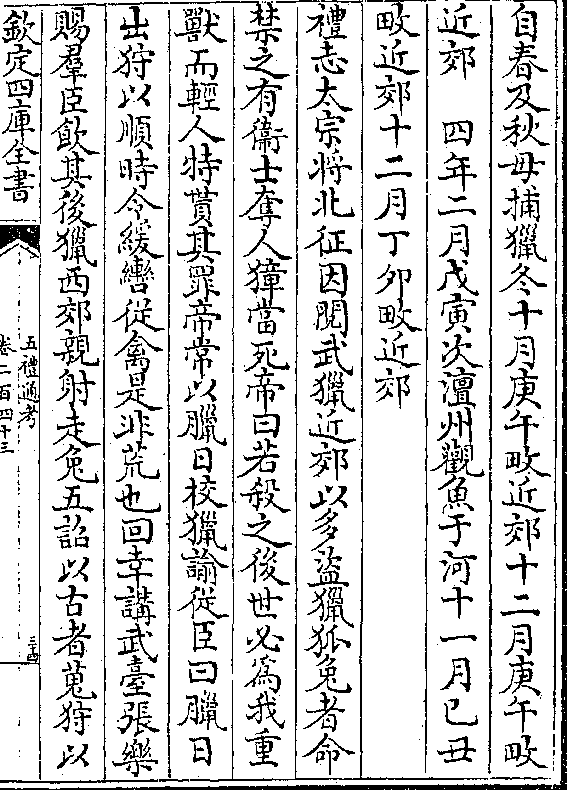 自春及秋毋捕獵冬十月庚午畋近郊十二月庚午畋
近郊　四年二月戊寅次澶州觀魚于河十一月已丑
畋近郊十二月丁卯畋近郊
禮志太宗將北征因閱武獵近郊以多盜獵狐兔者命
禁之有衞士奪人獐當死帝曰若殺之後世必為我重
獸而輕人特貰其罪帝常以臘日校獵諭從臣曰臘日
出狩以順時令緩轡從禽是非荒也回幸講武臺張樂
賜羣臣飲其後獵西郊親射走兔五詔以古者蒐狩以
欽定四庫全書
五禮通考
卷二百四十三
三十四